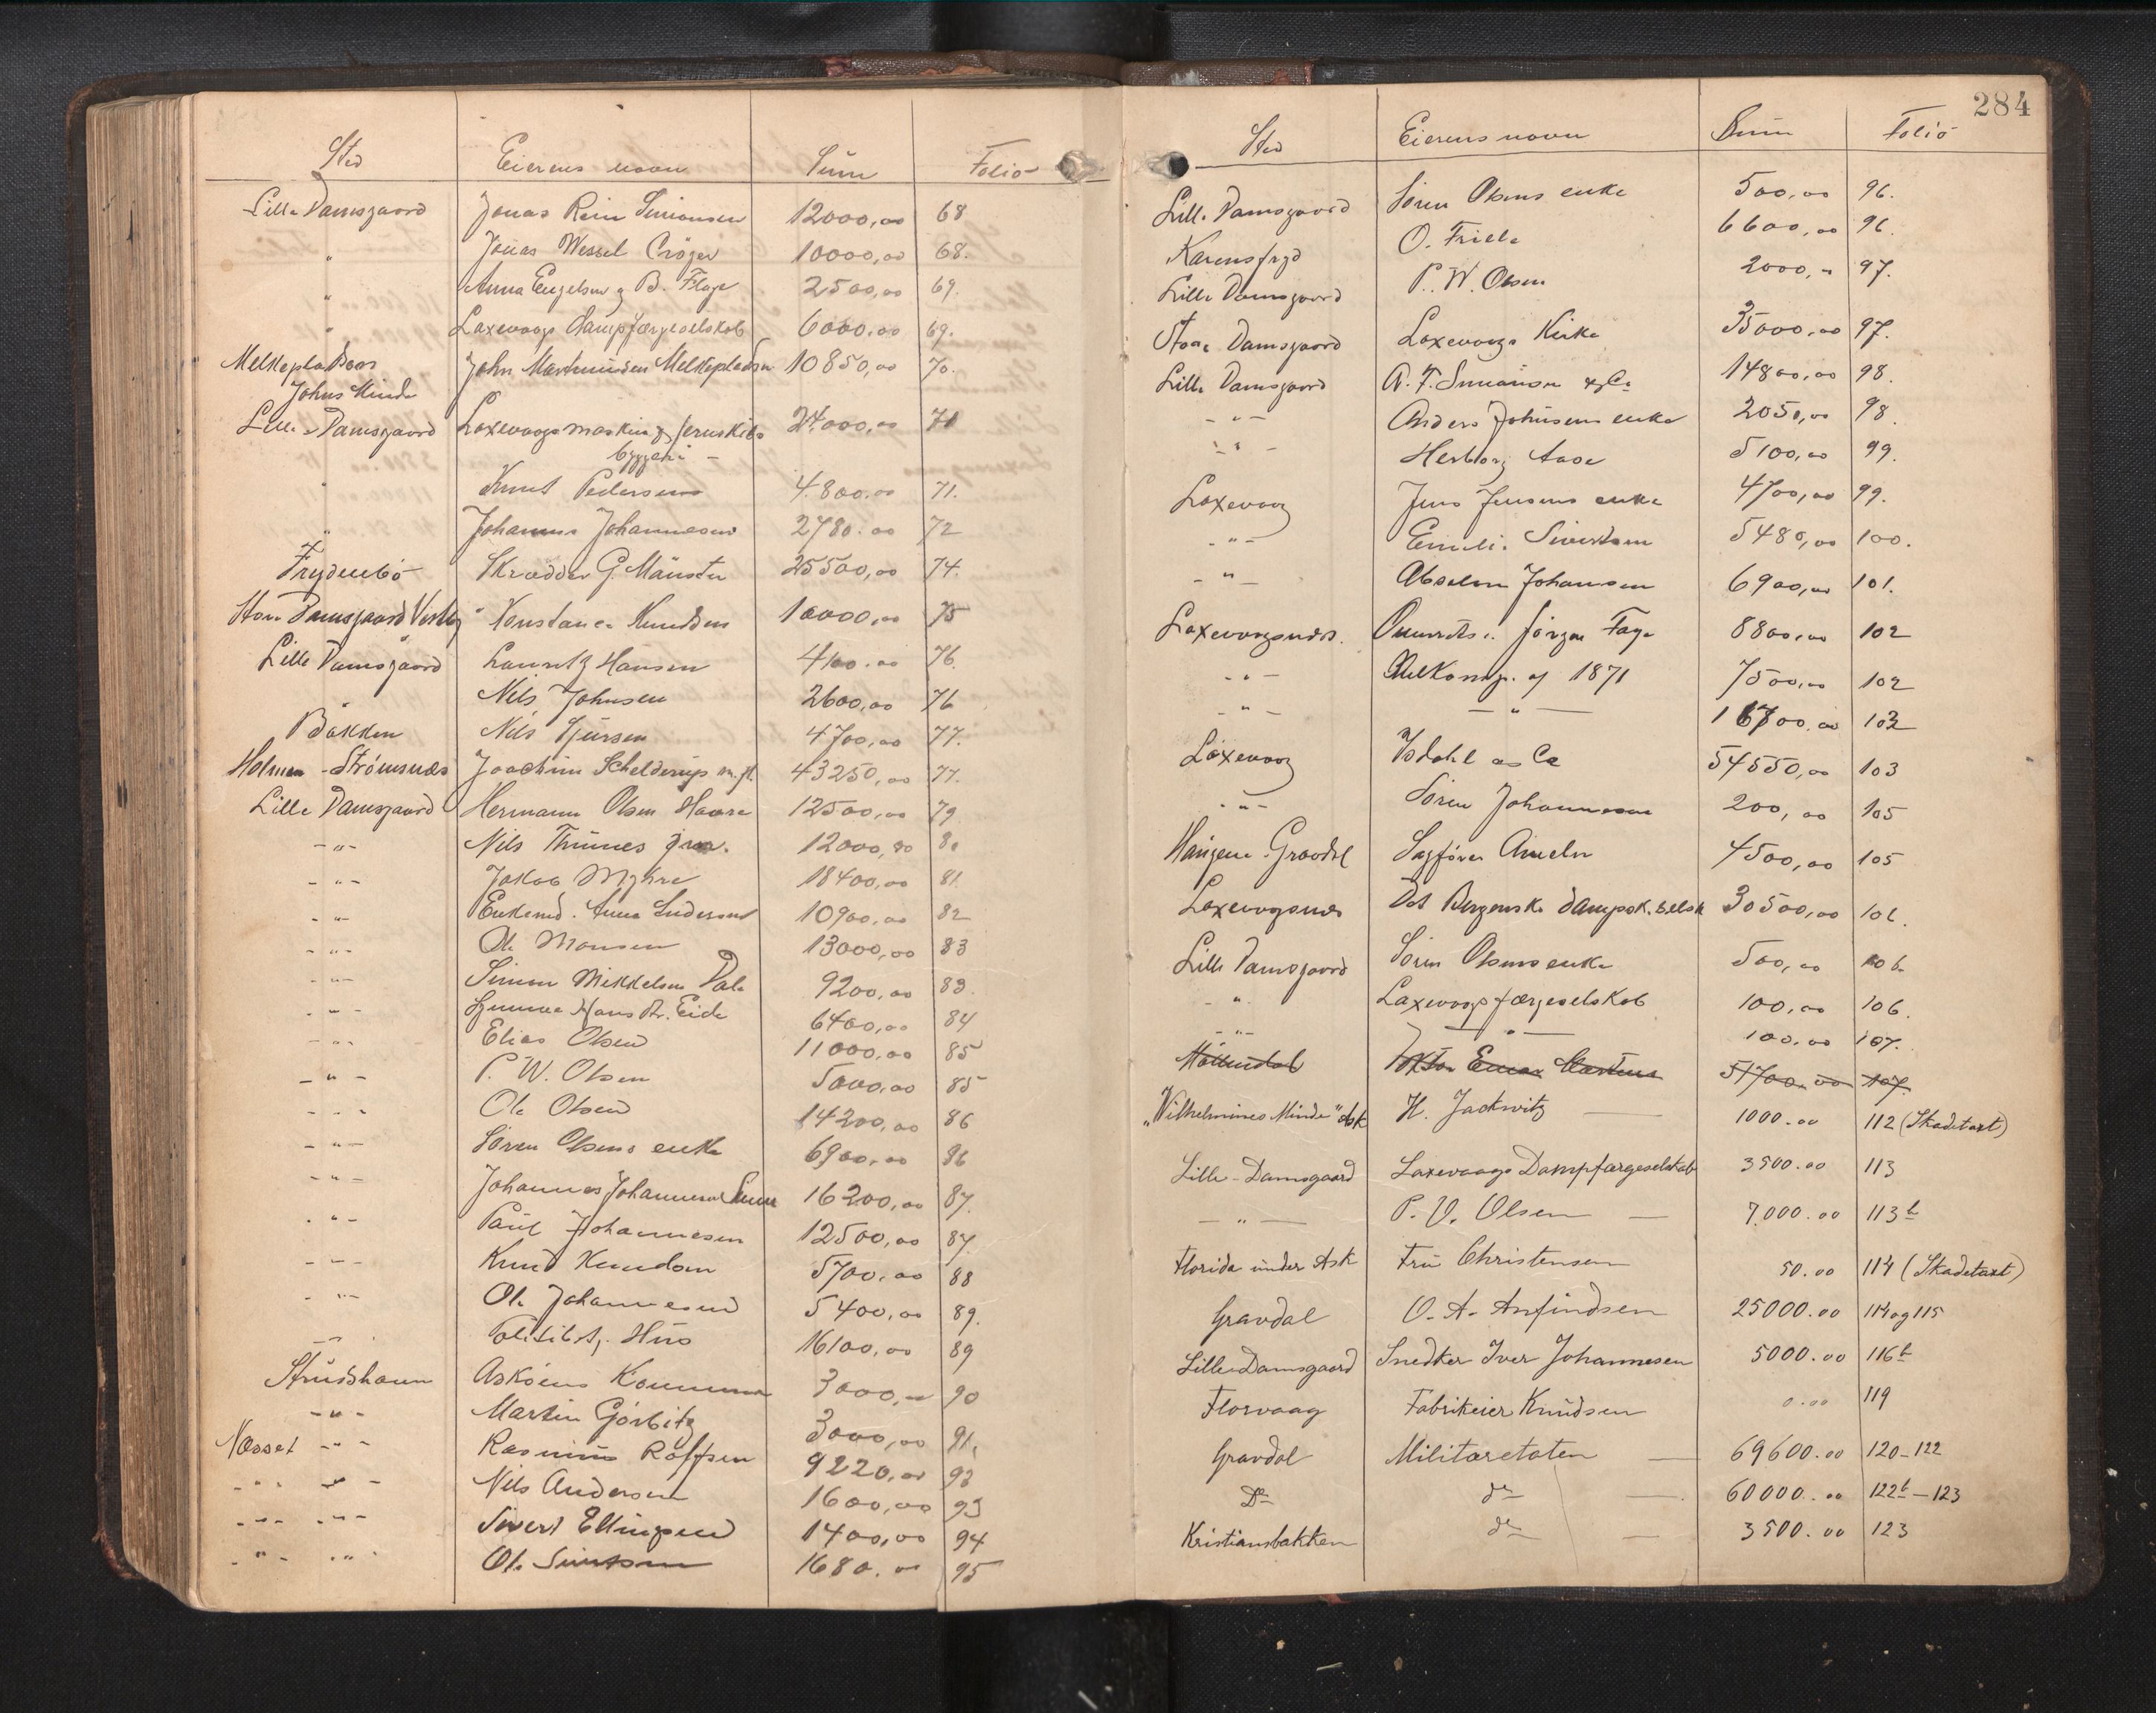 Sted Eierens navn Sum Folio
Lille Damsgaard Jonas Rein Simonsen 12000,00 68
" Jonas Wessel Cröger 10000,00 68.
" Anna Engelsen og B. Flage 2500,00 69.
" Laxevaags Dampfærgeselskab 6000.00 69.
Melkepladsen John Martinusen Melkepladsen 10850,00 70.
Johns Minde
Lille Damsgaard Laxevaags maskin og jernskibs 24.000,00 71
byggeri -
" Knut Pedersens 4.800.00 71.
" Johannes Johannesen 2780.00 72
Frydenbö Skrædder G. Münster 25500,00 74.
Store Damsgaard Konstance Knudsen 10000,00 75
Lille Damsgaard Lauritz Hansen 4100.00 76.
Nils Johnsen 2600,00 76
Bakken Nils Sjursen 4700,00 77.
Holmen - Strömsnæs Joachim Schelderup 43250,00 77.
Lille Damsgaard Hermann Olsen Haavre 12500,00 79
- " - Nils Thunes 12000,00 80
- " - Jakob Myhre 18400,00 81.
- " - Enkemd. Anna 10900,00 82
- " - Ole Monsen 13000,00 83
- " - Simon Mikkelsen Dale 9200,00 83.
- " - Hans Eide 6400,00 84
- " - Elias Olsen 11000,00 85
- " - P. W. Olsen 5000,00 85
- " - Ole Olsen 14200,00 86
- " - Sören Olsens enke 6900,00 86
- " - Johannes Johannesen 16200,00 87.
- " - Paul Johannesen 12500,00 87.
- " - Knud Knudsen 5700,00 88
- " - Ole Johannesen 5400,00 89.
- " - Hus 16100,00 89
Strusshavn Asköens Kommune 3000,00 90
- " - Martin Görbitz 3000,00 91.
Næsset - " - Rasmus Rolfsen 9220,00 93
- " - - " - Nils Andersen 1600,00 93
- " - - " - Sivert Ellingsen 1400,00 94
- " - - " - Ole Simonsen 1680.00 95
284
Sted Eierens navn Sum Folio
Lille Damsgaard Sören Olsens enke 500,00 96.
Karensfryd O. Friele 6600,00 96.
Lille Damsgaard P. W. Olsen 2000,- 97.
Store Damsgaard Laxevaags Kirke 35000,00 97.
Lille Damsgaard A. F. Simonsen & Co 14800,00 98.
- " - Anders Johnsens enke 2050,00 98.
- " - Herborg Aase 5100,00 99.
Laxevaag Jens Jensens enke 4700,00 99.
- " - Emili Sivertsen 5480,00 100.
- " - Absalon Johansen 6900,00 101.
Laxevaagsnæs. Jörgen Faye 8800,00 102
- " - Melkomp. af 1871 7500,00 102
- " - - " - 16700.00 103
Laxevaag Isdahl & Co 54550,00 103
- " - Sören Johannesen 200,00 105
Haugene Gravdal Sagförer Ameln 4500,00 105
Laxevaagsnæs Det Bergenske Dampsk.selsk 30500,00 106.
Lille Damsgaard Sören Olsens enke 500,00 106.
- " - Laxevaags færgeselskab 100,00 106.
- " - - " - 100.00 107.
Möllendal 51700.00 107.
"Vilhelmines Minde" Ask H. Jackwitz 1000.00 112 (Skadetaxt)
Lille-Damsgaard Laxevaags Dampfærgeselskab 3500.00 113
- " - P. V. Olsen 7.000.00 113b
Florida under Ask Fru Christensen 50.00 114 (Skadetaxt)
Gravdal O. A. Anfindsen 25000.00 114 og 115
Lille Damsgaard Snedker Iver Johannesen 5000.00 116b
Florvaag Fabrikeier Knudsen 0.00 119
Gravdal Militæretaten 69600.00 120-122
Do do 60000.00 122b-123
Kristiansbakken do 3500.00 123